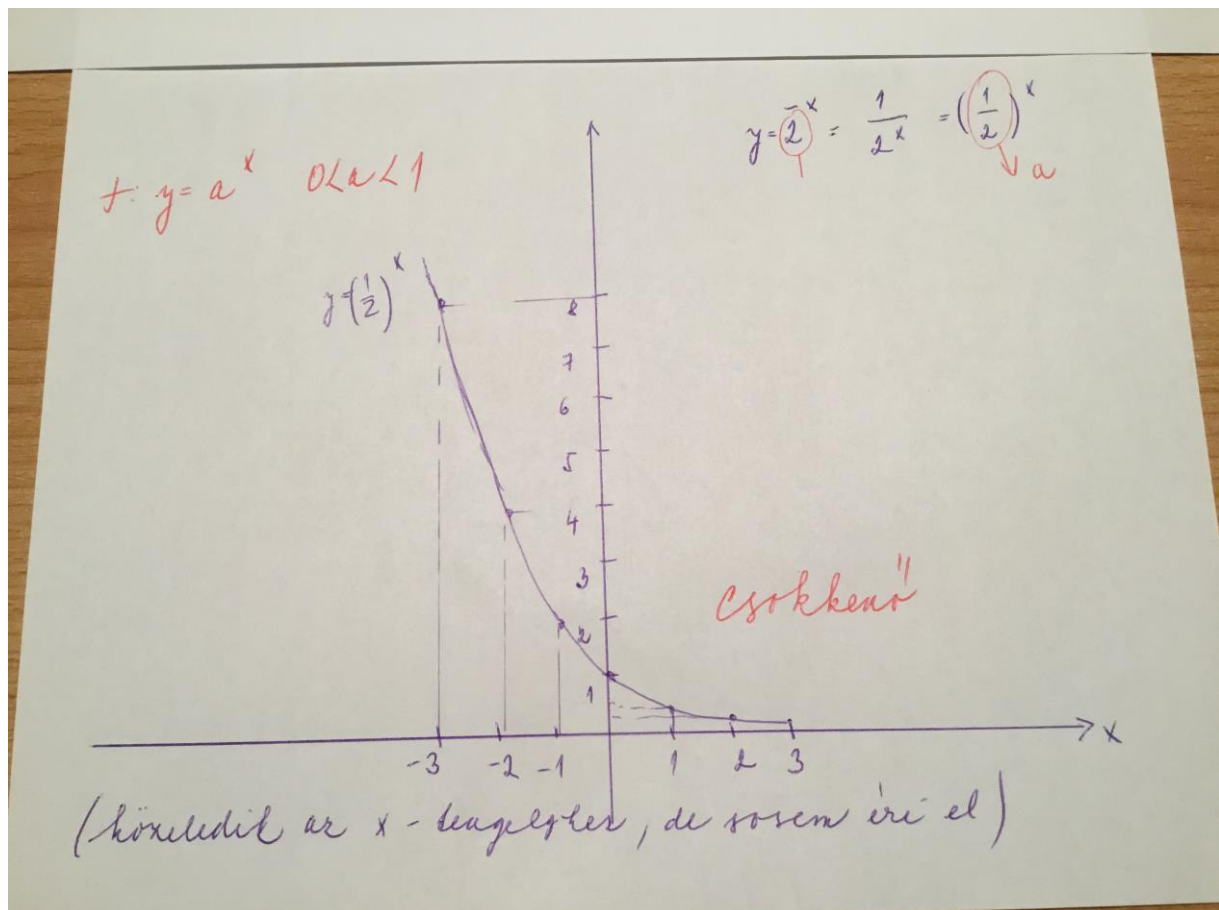 y = 2⁻ˣ = 1/2ˣ = (1/2)ˣ
a
f: y = aˣ 0<a<1
y=(1/2)ˣ
8
7
6
5
4
3
csökkenő
2
1
-3 -2 -1 1 2 3 x
(közeledik az x-tengelyhez, de sosem éri el)